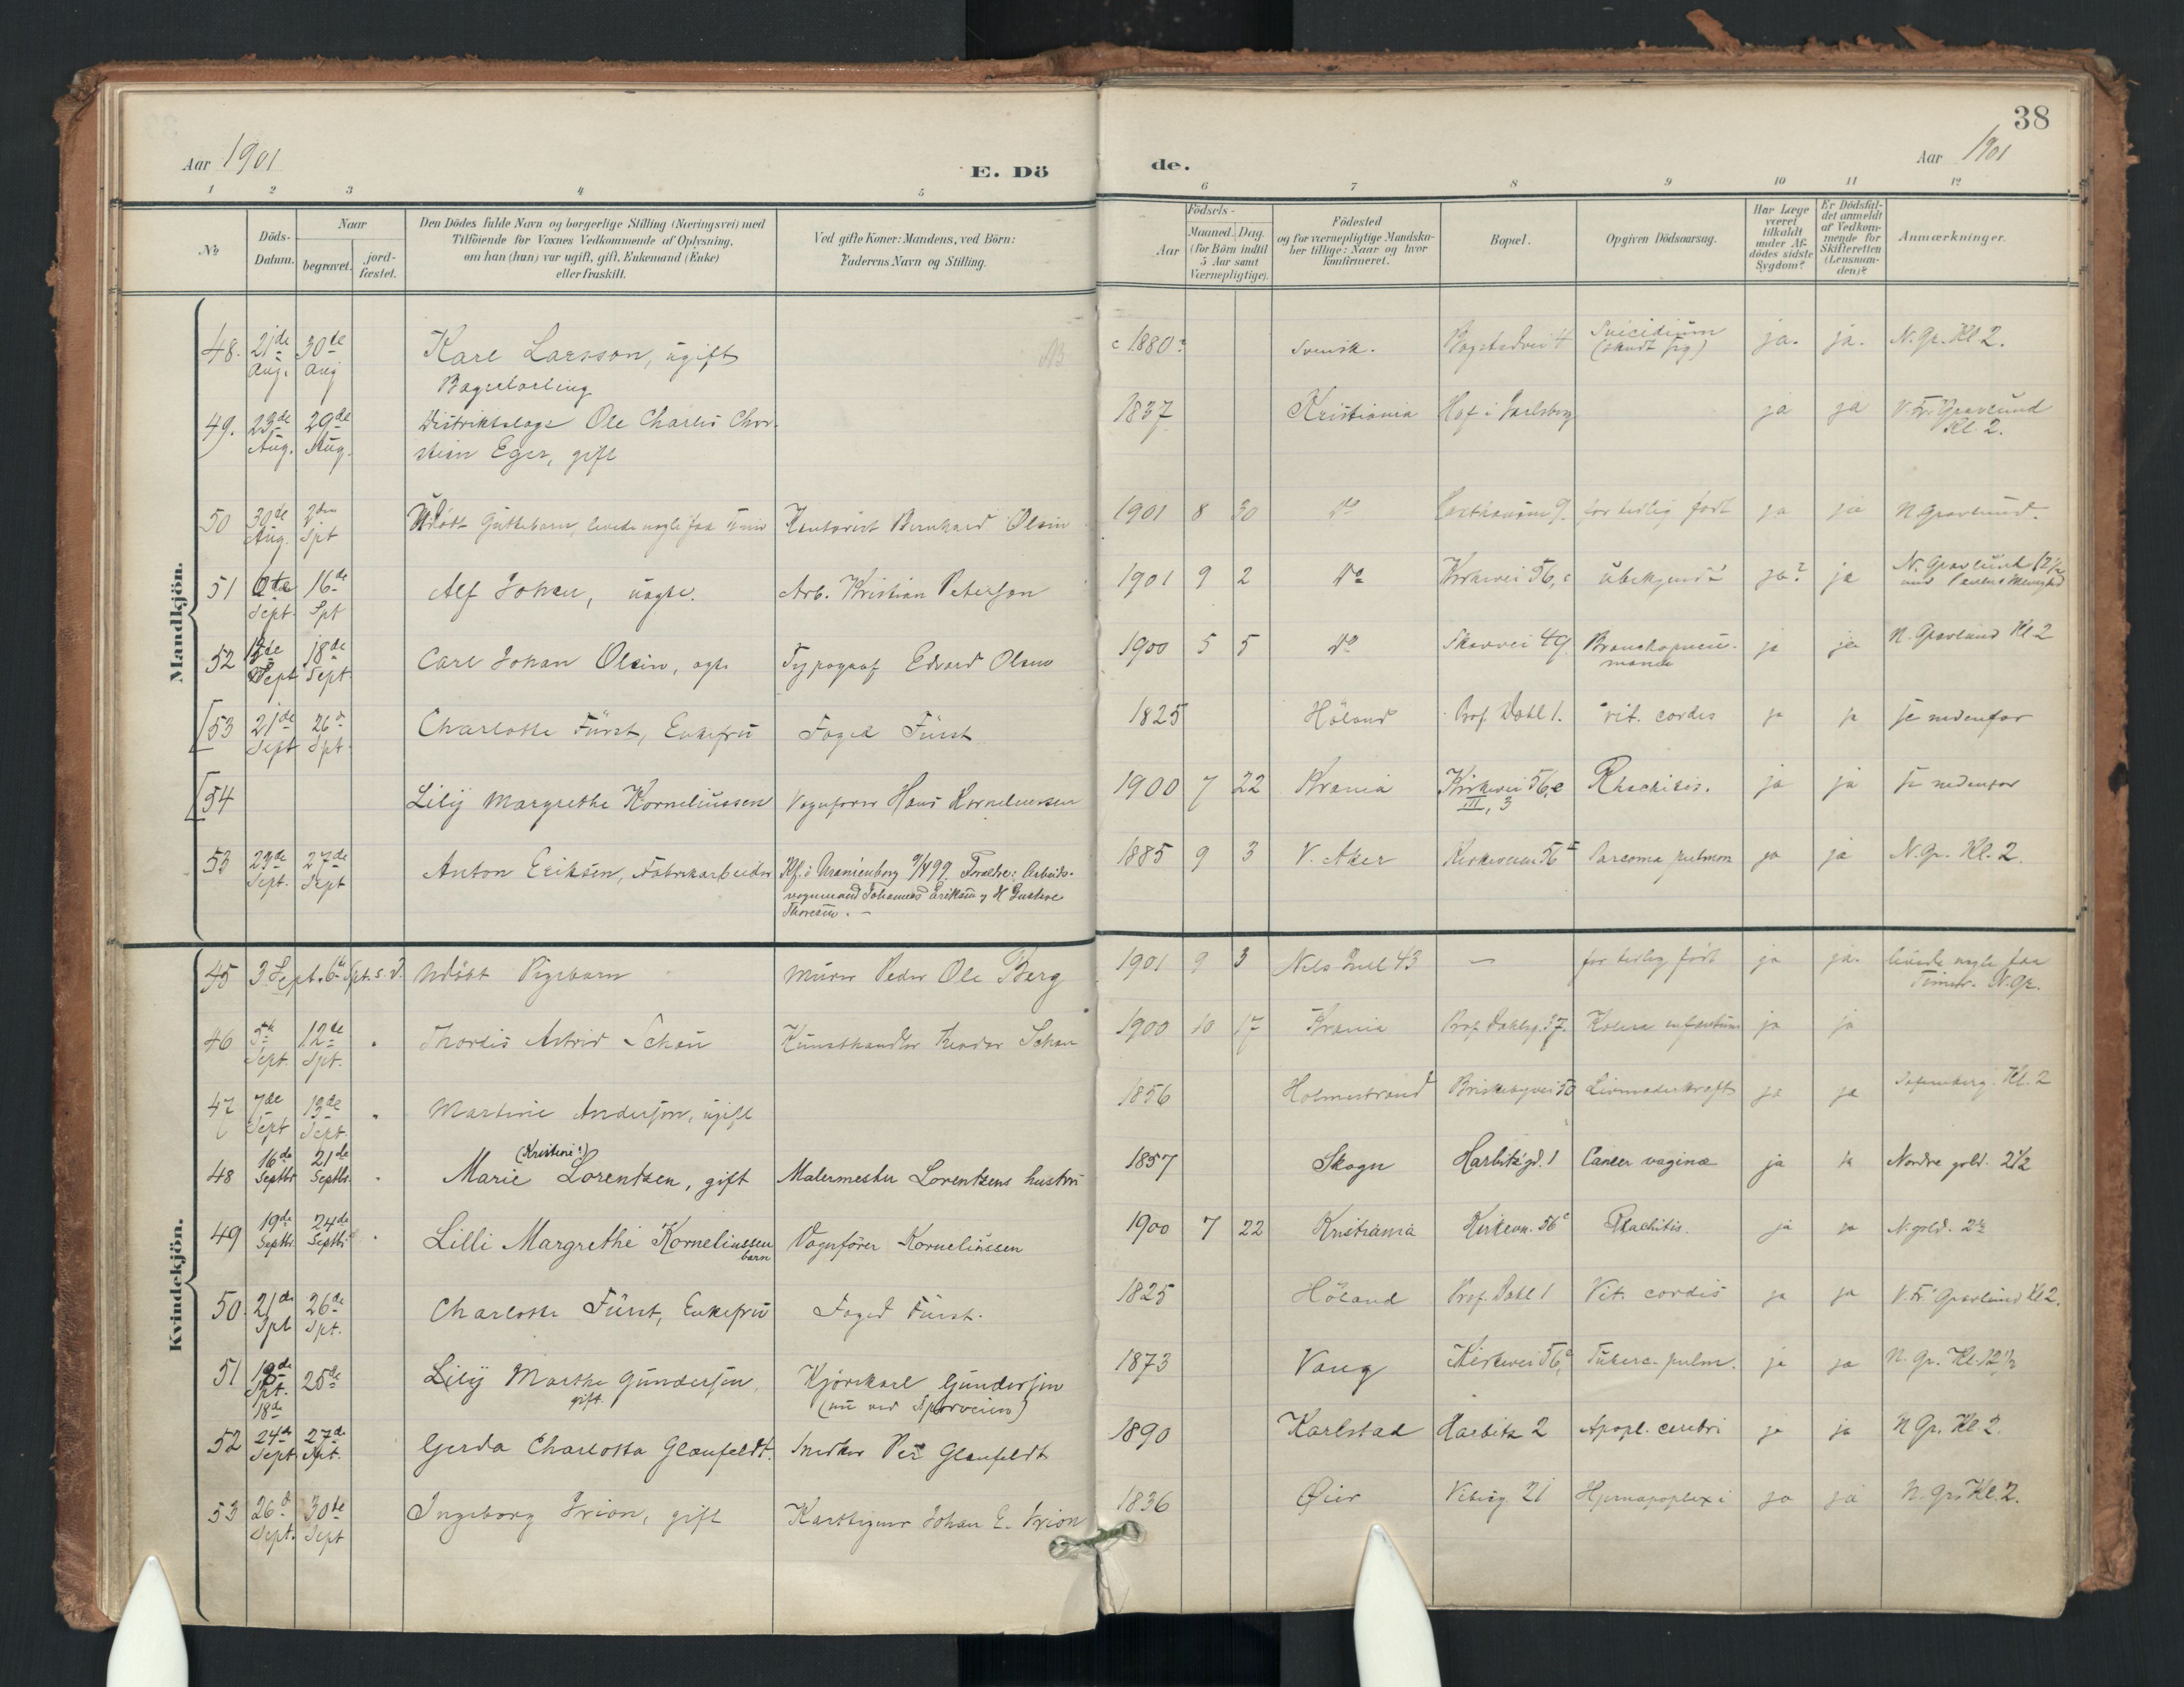 38
Aar 1901
E. Dö
de.
Aar 1901
1 2 3 4 5 6 7 8 9 10 11 12
No.
Döds-
Datum.
Naar
begravet.
jord-
fæstet.
Den Dödes fulde Navn og borgerlige Stilling (Næringsvei) med
Tilföiende for Voxnes Vedkommende af Oplysning,
om han (hun) var ugift, gift, Enkemand (Enke)
eller fraskilt.
Ved gifte Koner: Mandens, ved Börn:
Faderens Navn og Stilling.
Födsels-
Aar
Maaned. Dag.
(for Börn indtil
5 Aar samt
Værnepligtige).
Födested
og for værnepligtige Mandska-
ber tillige: Naar og hvor
konfirmeret.
Bopæl.
Opgiven Dödsaarsag.
Har Læge
været
tilkaldt
under Af-
dödes sidste
Sygdom?
Er Dödsfal-
det anmeldt
af Vedkom-
mende for
Skifteretten
(Lensman-
den)?
Anmærkninger.
Mandkjön.
48. 21de Aug. 30te Aug Karl Larsson, ugift c 1880? Svensk. Bogstadvei 4 Suicidium ja. ja. N. Gr. Kl 2.
(skudt sig)
49. 23de Aug. 29de Aug. Distriktslæge Ole Charles Chri- 1837 Kristiania Hof i Jarlsberg ja ja V. Fr. Gravlund
stian Eger, gift Kl. 2.
50 30te Aug. 2den Spt Udöbt Guttebarn, levede nogle faa Kontorist Bernhard Olsen 1901 8 30 do 9. for tidlig født ja ja N Gravlund.
51 Sept. 16de Spt Alf Johan, uægte. Arb. Kristian Peterson 1901 9 2 do Kirkevei 56, c ubekjendt ja? ja N. Gravlund
52 Sept 18de Sept. Carl Johan Olsen, ægte Typograf Edvard Olsen 1900 5 5 do 49 Bronchopneu- ja ja N. Gravlund Kl 2
monia
[53 21de Sept 26d Spt. Charlotte Fürst, Enkefru Foged Fürst 1825 Höland Prof. Dahl 1. Vit. cordis ja ja se nedenfor
[54 Lily Margrethe Korneliussen Vognfører Hans Korneliussen 1900 7 22 Krania Kirkevei 56, c Rhachitis. ja ja se nedenfor
III, 3
53 23de Sept. 27de Sept Anton Eriksen, Fabrikarbeider Kf. i Uranienborg 1899. Forældre: Arbeids- 1885 9 3 V. Aker Kirkeveien 56 Sarcoma pulmon ja ja N. Gr. Kl. 2.
vognmand Johannes Eriksen og H Gustave
Thoresen. -
Kvindekjön.
45 3 Sept. 6te Spt. s. d. Udöbt Pigebarn Murer Peder Ole Berg 1901 9 3 Nels Juel 43 - for tidlig født ja ja. levede nogle faa
Timer. N. Gr.
46 5te Sept. 12te Spt. " Thordis Astrid Schou Kunsthandler Schou 1900 10 17 Krania Prof. Dahlsg. 37. Kolera infantum ja ja
47 7de Sept 13de Sept. " Martine Anderson, ugift 1856 Holmestrand Briskebyvei 50 Livmoderkræft ja ja Kl. 2
48 16de Septbr 21de Septbr. " Marie (Kristine?) Lorentzen, gift Malermester Lorentzens hustru 1857 Skogn Harbitz'gd. 1 Cancer vaginæ ja ja Nordre gvld. 2½
49 19de Septbr. 24de Septbr " Lilli Margrethe Korneliussen Vognfører Korneliussen 1900 7 22 Kristiania Kirkevn. 56c Rhachitis. ja ja N. gvld. 2½
barn
50. 21de Spt 26de Spt. Charlotte Fürst, Enkefru Foged Fürst. 1825 Höland Prof. Dahl 1 Vit. cordis ja ja V. Fr. Gravlund Kl 2.
51 Spt. 18de 25de Lily Marthe Gundersen, Kjørekarl Gundersen 1873 Vang Kirkevei 56, c Tuberc. pulm. ja ja N. Gr. Kl. 12½
gift. (nu ved Sporveien)
52 24de Sept. 27de Spt. Gerda Charlotta Glanfeldt. Snedker Per Glanfeldt 1890 Karlstad Harbitz 2 Apopl. cerebri ja ja N Gr. Kl. 2.
53 26d Sept. 30te Sept Ingeborg Irion, gift Johan E. Irion 1836 Øier Vibeg. 21 Hjerneapoplexi ja ja N. Gr. Kl. 2.